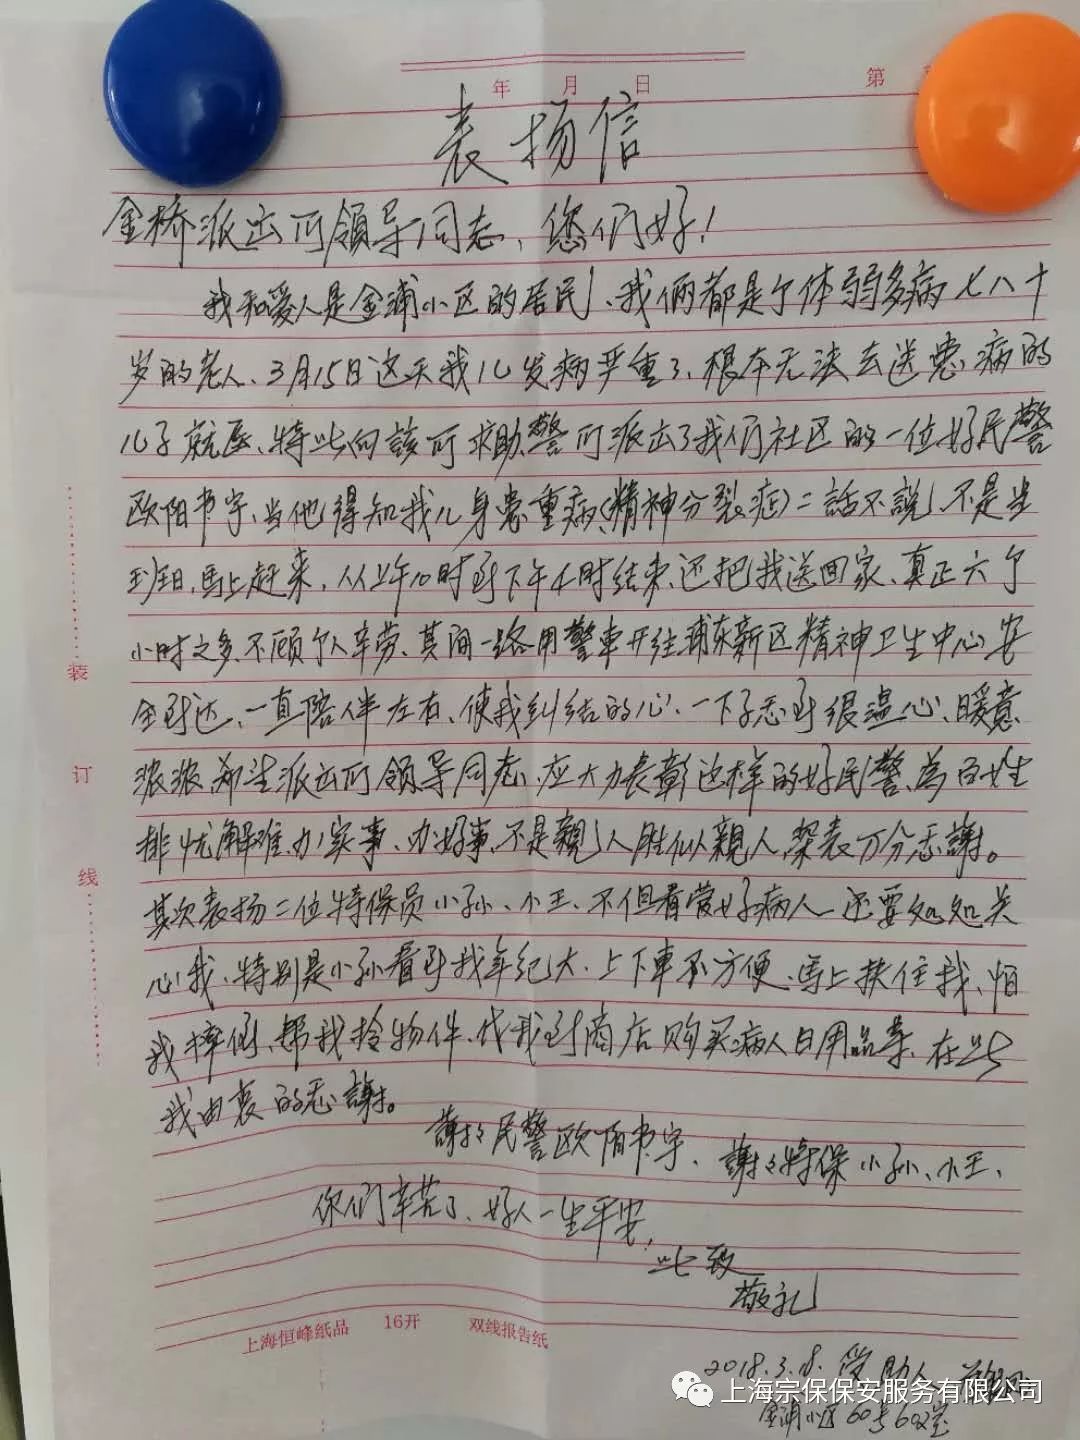 年 月 日 第
表扬信
金桥派出所领导同志、您们好！
我和爱人是金浦小区的居民、我俩都是个体弱多病七八十
岁的老人、3月15日这天我儿发病严重了、根本无法去送患病的
儿子就医、特此向該所求助、警所派出了我们社区的一位好民警
欧阳书宇、当他得知我儿身患重病(精神分裂症)二話不説、不是当
班日、馬上赶来，从上午10时到下午4时结束、还把我送回家、真正六个
小时之多、不顾个人辛劳、其间一路用警車开往浦东新区精神卫生中心安
全到达、一直陪伴左右、使我纠结的心、一下子感到很温心、暖意
浓浓、希望派出所领导同志、应大力表彰这样的好民警、為百姓
排忧解难、办实事、办好事、不是親人胜似親人、深表万分感謝。
其次表扬二位特保员小孙、小王、不但看管好病人、还要处处关
心我、特别是小孙看到我年纪大、上下車不方便、馬上扶住我、怕
我摔倒、帮我拎物件、代我到商店购买病人日用品等、在此
我由衷的感謝。
謝謝民警欧阳书宇、謝謝特保小孙、小王、
你们辛苦了、好人一生平安，
此致
敬礼
装
订
线
上海恒峰纸品 16开 双线报告纸
2018.3.18. 受助人
上海宗保保安服务有限公司
金浦小区60号602室